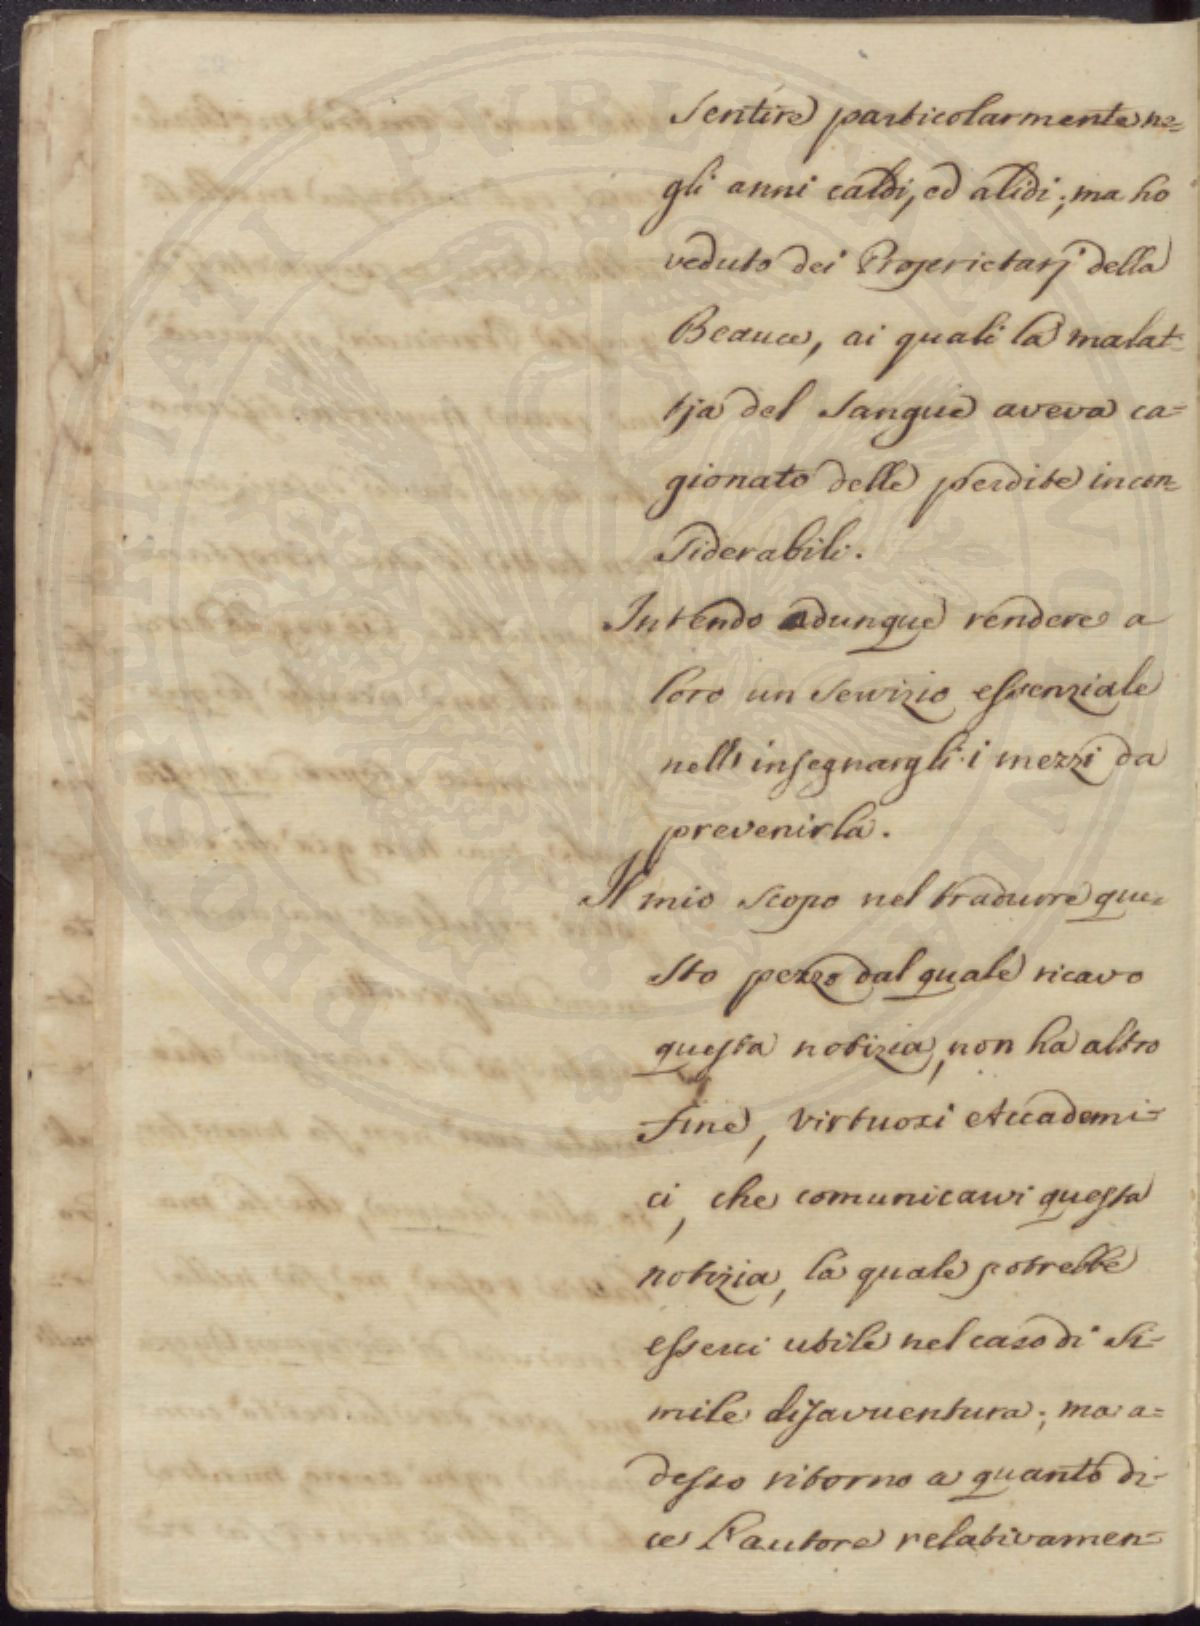 sentire particolarmente ne=
gli anni caldi, ed alidi; ma ho
veduto dei Proprietarj della
Beauce, ai quali la malat=
tja del Sangue aveva ca=
gionato delle perdite incon=
siderabili.
Intendo adunque rendere a
loro un servizio essenziale
nell'insegnargli i mezzi da
prevenirla.
Il mio scopo nel tradurre que=
sto pezzo dal quale ricavo
questa notizia, non ha altro
fine, virtuosi Accademi=
ci, che comunicarvi questa
notizia, la quale potrebbe
esserci utile nel caso di si=
mile disavventura; ma a=
desso ritorno a quanto di=
ce L'autore relativamen=
PUBLICAE
PROSPERITATI